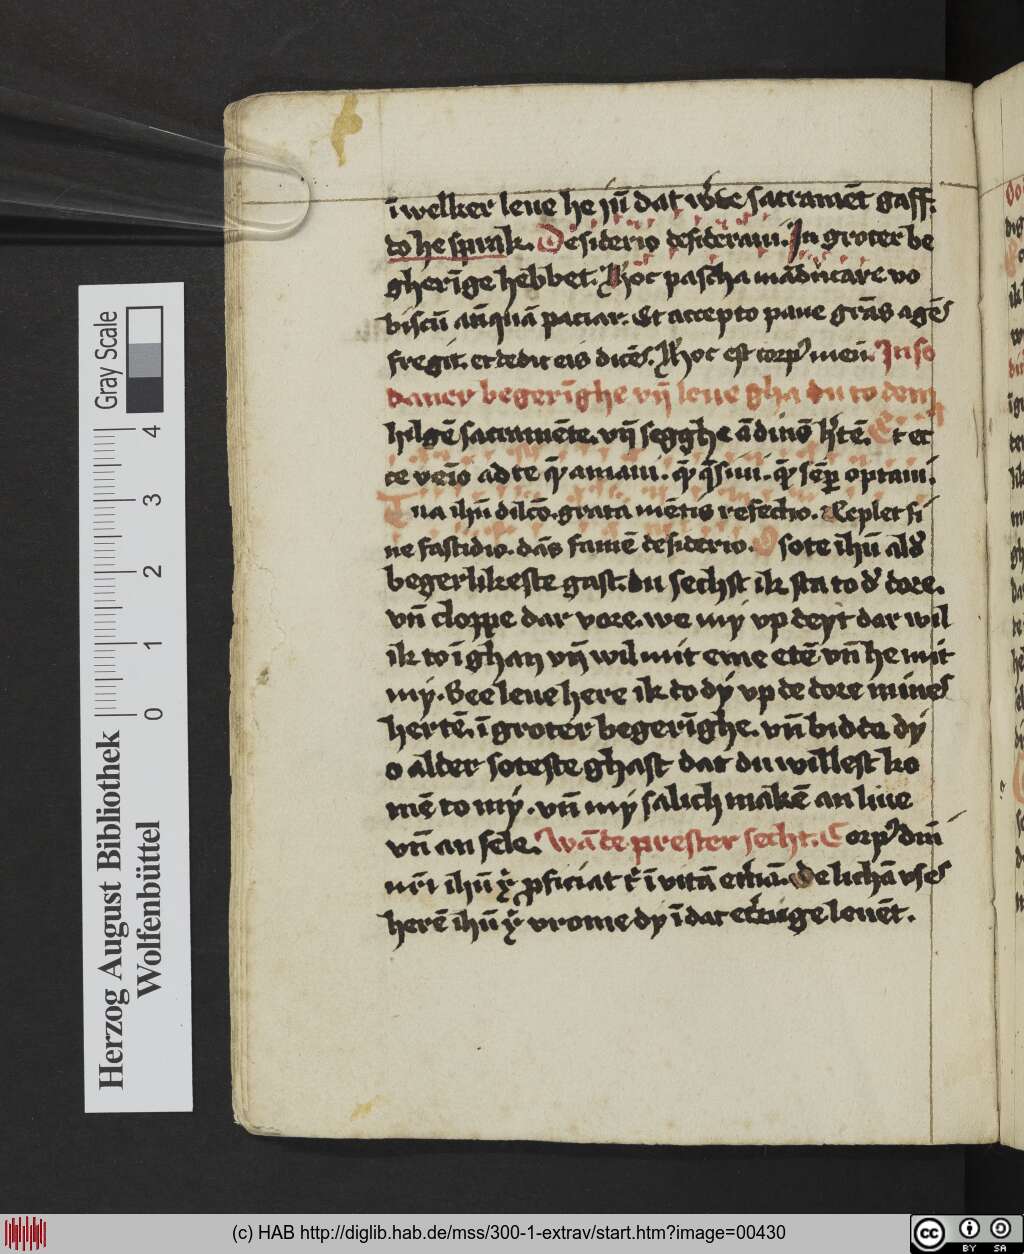 ī welker leue he jū dat w'de sacramēt gaff.
do he sprak. Desiderio desideraui. In groter be
gherīge hebbet. Hoc pascha māducare vo
biscū anquā paciar. Et accepto pane grās agēs
fregit. et dedit eis dicēs. Hoc est corp' meū. In so
daner begerīghe vn̄ leue gha du to dem
hilgē sacramēte. vn̄ segghe ādinō h'tē. Et ec
ce veīo ad te q̄ amaui. q̄ q̄siui. q̄ sēp optaui.
Tua ihū dilcō. grata mētis refectio. Replet si
ne fastidio. dās famē desiderio. O sote ihū ald'
begerlikeste gast. du sechst ik sta to d' dore.
vn̄ cloppe dar vore. we my vp deyt dar wil
ik to ī ghan vn̄ wil mit eme etē vn̄ he mit
my. See leue here ik do dy vp de dore mines
hertē. ī groter begerīghe. vn̄ bidde dy
o alder soteste ghast dat du willest ko
mē to my. vn̄ my salich makē an liue
vn̄ an sele. Wā de prester secht. Corp' dn̄i
nr̄i ihū x̄ p̄ficiat t̄ ī vitā et'nā. De lichā vses
herē ihū x̄ vrome dy ī dat ewige leuēt.
Gray Scale
0 1 2 3 4
Herzog August Bibliothek
Wolfenbüttel
(c) HAB http://diglib.hab.de/mss/300-1-extrav/start.htm?image=00430
cc BY SA